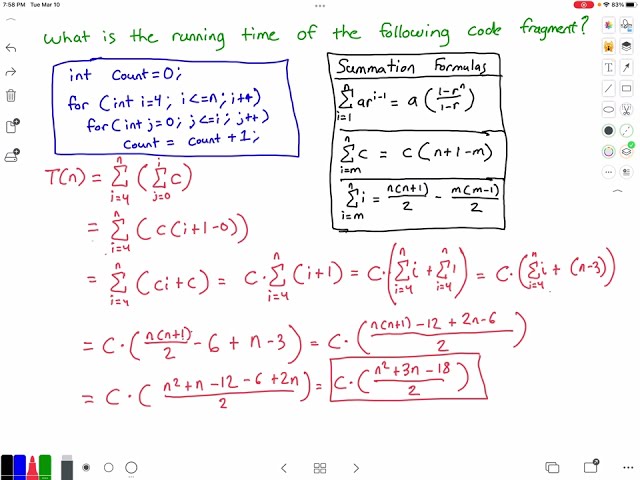 7:58 PM Tue Mar 10
83%
what is the running time of the following code fragment?
int count=0;
for (int i=4; i<=n; i++)
for (int j=0; j<=i; j++)
count = count +1;
Summation Formulas
n∑i=1 ar^(i-1) = a ( (1-r^n)/(1-r) )
n∑i=m c = c (n+1-m)
n∑i=m i = n(n+1)/2 - m(m-1)/2
T(n) = n∑i=4 ( i∑j=0 c )
= n∑i=4 ( c(i+1-0) )
= n∑i=4 (ci+c) = c· n∑i=4 (i+1) = c·( n∑i=4 i + n∑i=4 1 ) = c·( n∑i=4 i + (n-3) )
= c·( n(n+1)/2 - 6 + n - 3 ) = c·( (n(n+1) -12 + 2n -6)/2 )
= c·( (n²+n -12 -6 +2n)/2 ) = c·( (n²+3n -18)/2 )